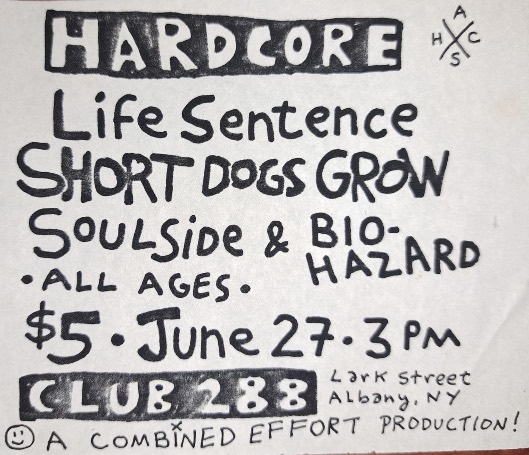 HARDCORE
A
H C
S
Life Sentence
SHORT DOGS GROW
SOULSide & BIO-
HAZARD
• ALL AGES •
$5 • June 27 • 3 PM
CLUB 288
Lark Street
Albany, NY
A COMBINED EFFORT PRODUCTION!